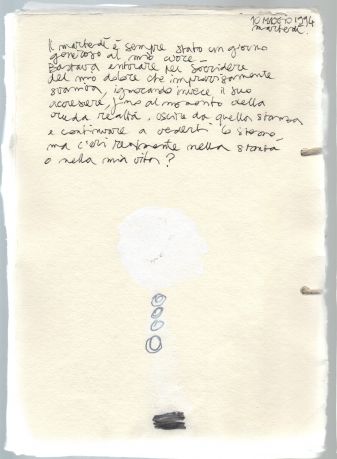 10 MAGGIO 1994
martedì.
Il martedì è sempre stato un giorno
generoso al mio cuore.
Bastava entrare per sorridere
del mio dolore che improvvisamente
svaniva, ignorando invece il suo
accrescere, fino al momento della
cruda realtà. uscire da quella stanza
e continuare a vederti lo stesso_
ma c'eri realmente nella stanza
o nella mia vita?